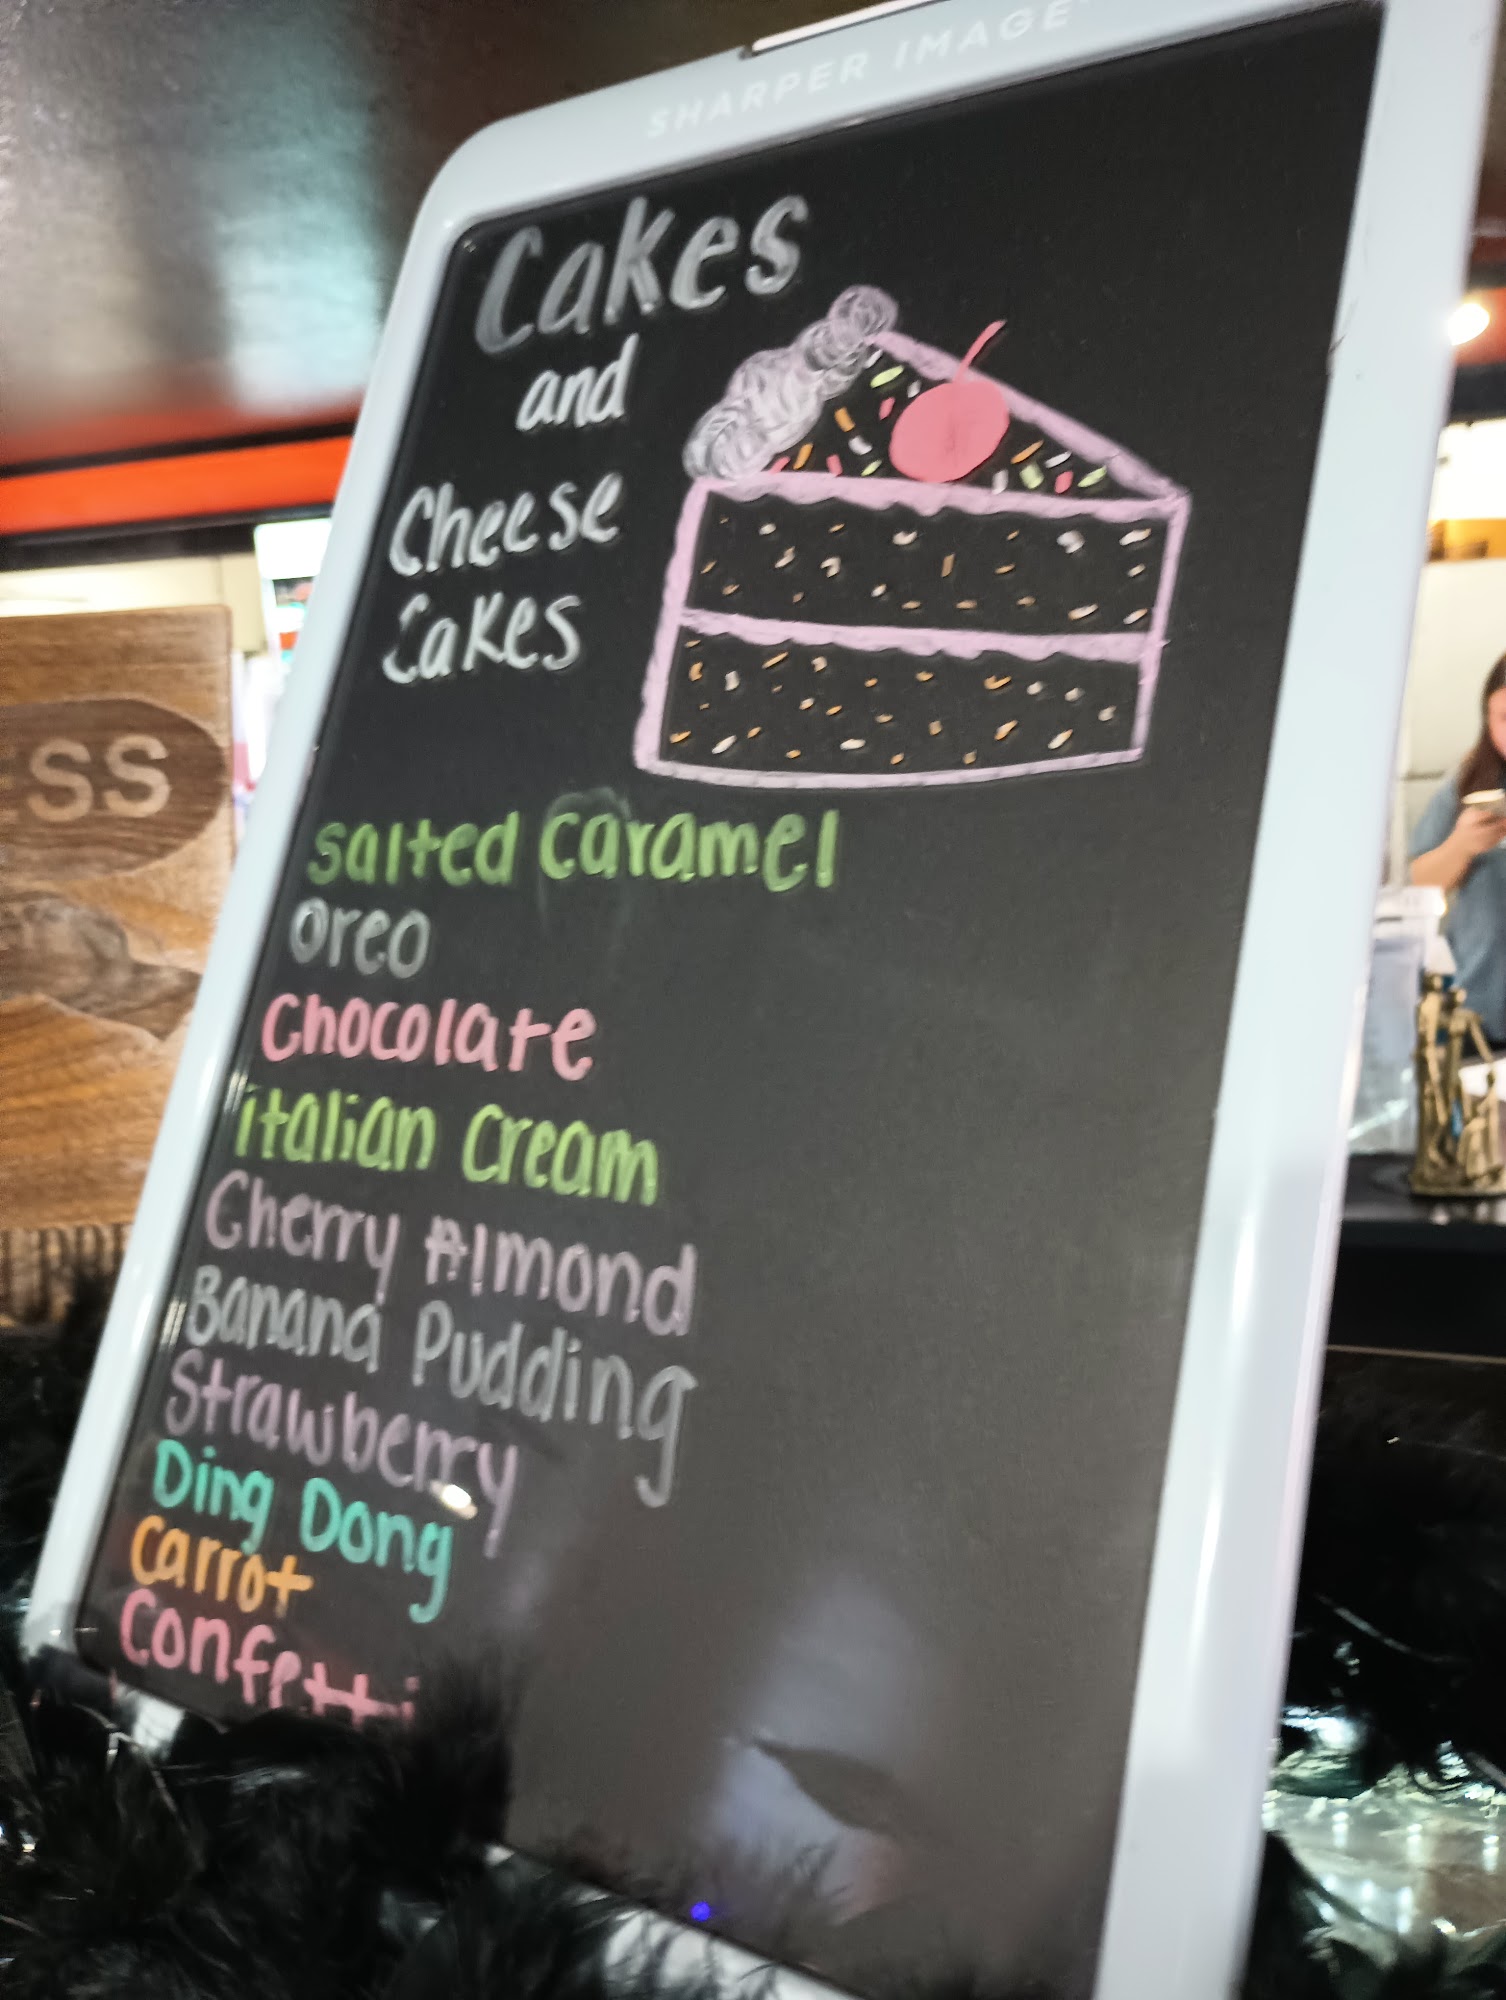 SHARPER IMAGE
Cakes
and
Cheese
Cakes
ESS
Salted Caramel
Oreo
Chocolate
italian Cream
Cherry Almond
Banana Pudding
Strawberry
Ding Dong
Carrot
Confetti